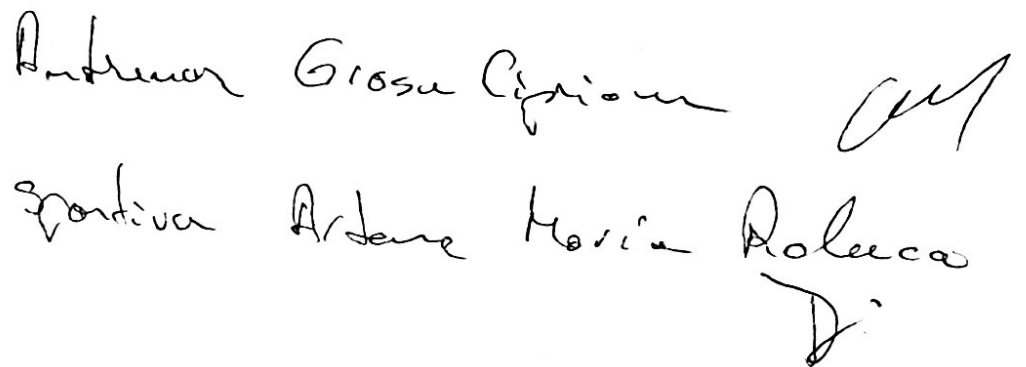 Antrenor Grosu Ciprian
Sportiva Artene Maria Raluca